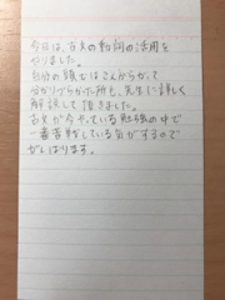 今日は、古文の動詞の活用を
やりました。
自分の頭ではこんがらがって
分かりづらかった所も、先生に詳しく
解説して頂きました。
古文が今やっている勉強の中で
一番苦戦している気がするので
がんばります。